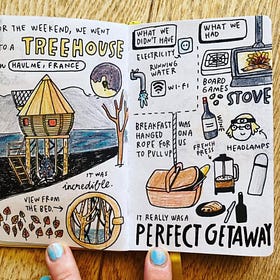 FOR THE WEEKEND, WE WENT
TO A TREEHOUSE
IN HAULME, FRANCE
IT WAS
incredible.
VIEW FROM
THE BED
WHAT WE
DIDN'T HAVE
ELECTRICITY
RUNNING
WATER
WI-FI
BREAKFAST
HANGED
ROPE FOR
TO PULL UP
WAS
ON A
US
WHAT WE
HAD
BOARD
GAMES
STOVE
WINE
HEADLAMPS
FRENCH
PRESS
IT REALLY WAS A
PERFECT GETAWAY